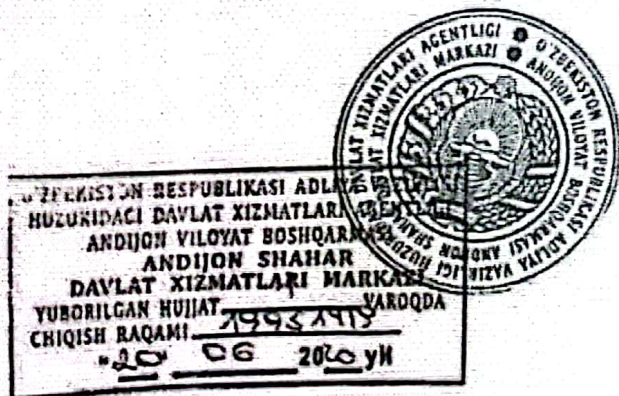 O'ZBEKISTON RESPUBLIKASI ADLIYA VAZIRLIGI HUZURIDAGI DAVLAT XIZMATLARI AGENTLIGI
ANDIJON VILOYAT BOSHQARMASI ANDIJON SHAHAR DAVLAT XIZMATLARI MARKAZI
O'ZBEKISTON RESPUBLIKASI ADLIYA
HUZURIDAGI DAVLAT XIZMATLARI
ANDIJON VILOYAT BOSHQARMASI
ANDIJON SHAHAR
DAVLAT XIZMATLARI MARKAZI
YUBORILGAN HUJJAT VAROQDA
CHIQISH RAQAMI
"20" 06 2020 yil